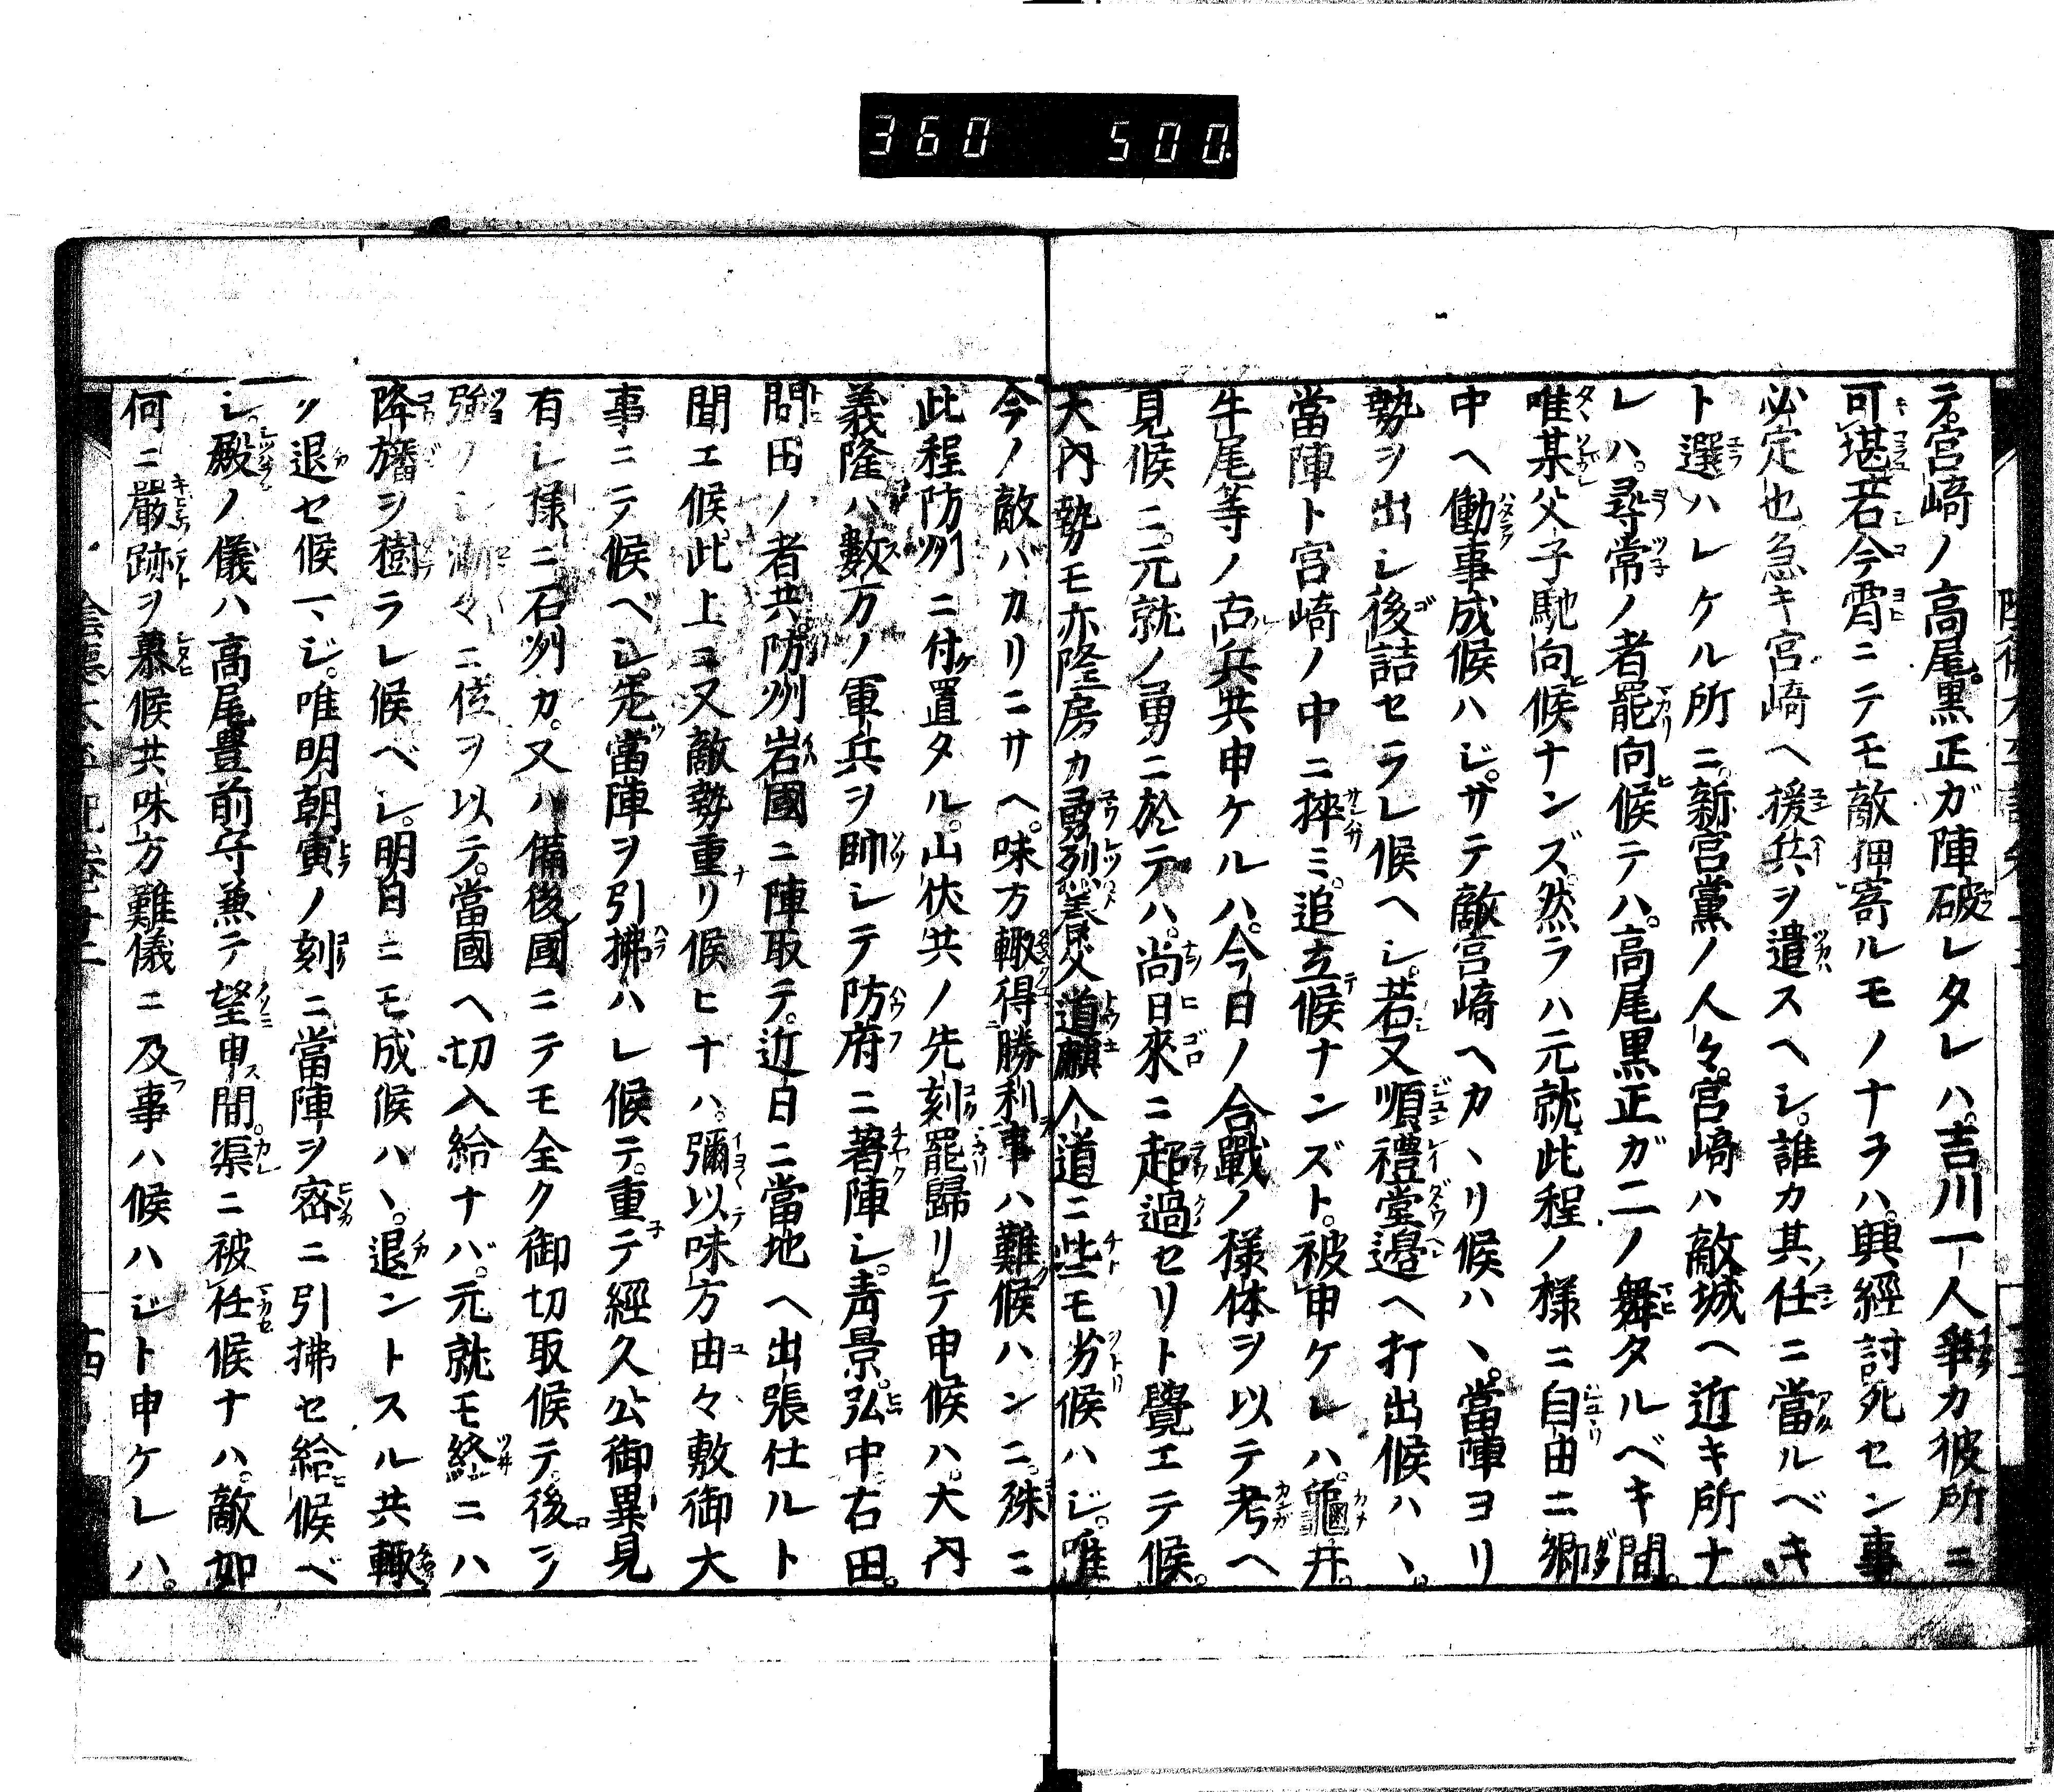 360 500.
テ。宮﨑ノ高尾。黒正ガ陣破レタレハ。吉川一人争カ彼所ニ
可堪若今霄ニテモ敵押寄ルモノナラハ。興經討死セン事
必定也急キ宮﨑ヘ援兵ヲ遣スヘシ。誰カ其任ニ當ルベキ
ト選ハレケル所ニ。新宮黨ノ人々。宮﨑ハ敵城ヘ近キ所ナ
レハ。尋常ノ者罷向候テハ。高尾黒正ガ二ノ舞タルベキ間。
唯某父子馳向候ナンズ。然ラハ元就此程ノ様ニ自由ニ郷
中ヘ働事成候ハジ。サテ敵宮﨑ヘカヽリ候ハヽ。當陣ヨリ
勢ヲ出シ後詰セラレ候ヘシ。若又順禮堂邉ヘ打出候ハヽ。
當陣ト宮﨑ノ中ニ捽ミ。追立候ナンズト。被申ケレハ。龜井。
牛尾等ノ古兵共申ケルハ。今日ノ合戰ノ様体ヲ以テ考ヘ
見候ニ。元就ノ勇ニ於テハ。尚日來ニ超過セリト覺エテ候。
大内勢モ亦隆房カ勇烈養父道麒入道ニ些モ劣候ハジ。唯
今ノ敵バカリニサヘ。味方輙得勝利事ハ難候ハンニ。殊ニ
此程防州ニ付置タル。山伏共ノ先刻罷歸リテ申候ハ。大内
義隆ハ數万ノ軍兵ヲ帥シテ防府ニ著陣シ。靑景。弘中。右田。
問田ノ者共。防州岩國ニ陣取テ。近日ニ當地ヘ出張仕ルト
聞エ候。此上ニ又敵勢重リ候ヒナハ。彌以味方由々敷御大
事ニテ候ベシ。先當陣ヲ引拂ハレ候テ。重テ經久公御異見
有シ様ニ石州カ。又ハ備後國ニテモ全ク御切取候テ。後ヲ
強ノシ漸々ニ位ヲ以テ。當國ヘ切入給ナバ。元就モ終ニハ
降旛ヲ樹ラレ候ベシ。明日ニモ成候ハヽ。退ントスル共輙
ツ退セ候マジ。唯明朝寅ノ刻ニ當陣ヲ宻ニ引拂セ給候ベ
シ。殿ノ儀ハ高尾豊前守兼テ望申間。渠ニ被任候ナハ。敵如
何ニ嚴跡ヲ慕候共味方難儀ニ及事ハ候ハジト申ケレハ。